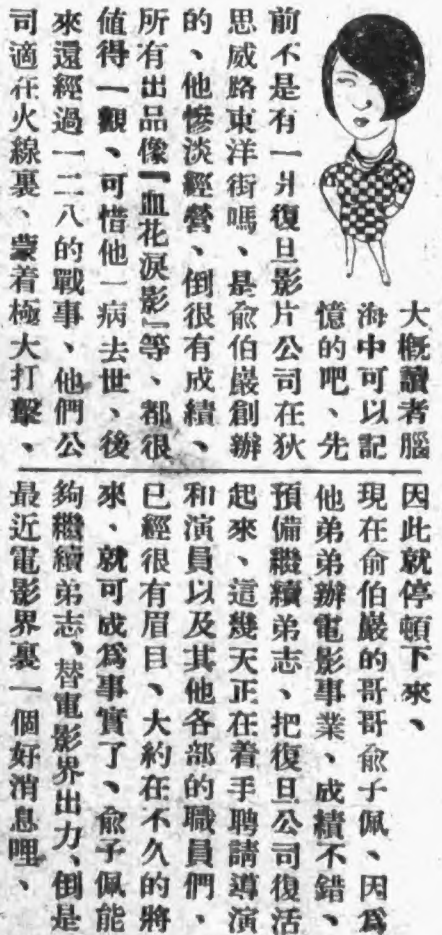 大概讀者腦
海中可以記
憶的吧、先
前不是有一爿復旦影片公司在狄
思威路東洋街嗎、是俞伯巖創辦
的、他慘淡經營、倒很有成績、
所有出品像『血花淚影』等、都很
值得一觀、可惜他一病去世、後
來還經過一二八的戰事、他們公
司適在火線裏、蒙着極大打擊、
因此就停頓下來、
現在俞伯巖的哥哥俞子佩、因爲
他弟弟辦電影事業、成績不錯、
預備繼續弟志、把復旦公司復活
起來、這幾天正在着手聘請導演
和演員以及其他各部的職員們、
已經很有眉目、大約在不久的將
來、就可成爲事實了、俞子佩能
夠繼續弟志、替電影界出力、倒是
最近電影界裏一個好消息哩、